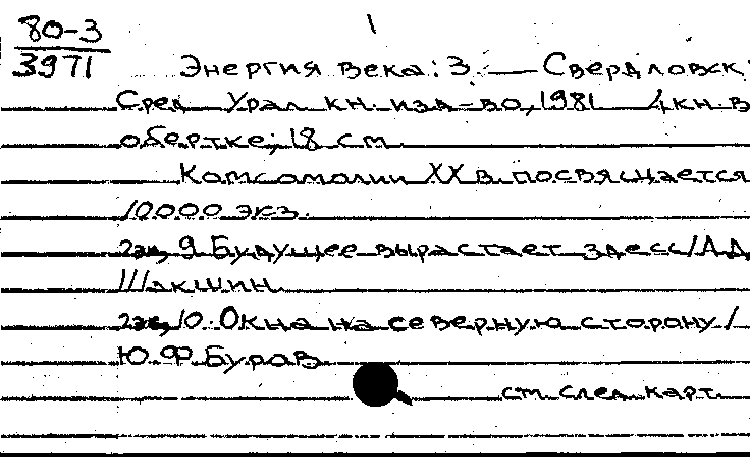 80-3
3971
Энергия века: 3. — Свердловск:
Сред.-Урал. кн. изд-во, 1981 4 кн. в
обертке; 18 см.
Комсомолии XX в. посвящается
10000 экз.
9. Будущее вырастает здесь / А.Д.
10. Окна на северную сторону /
Ю.Ф. Буров
см. след. карт.